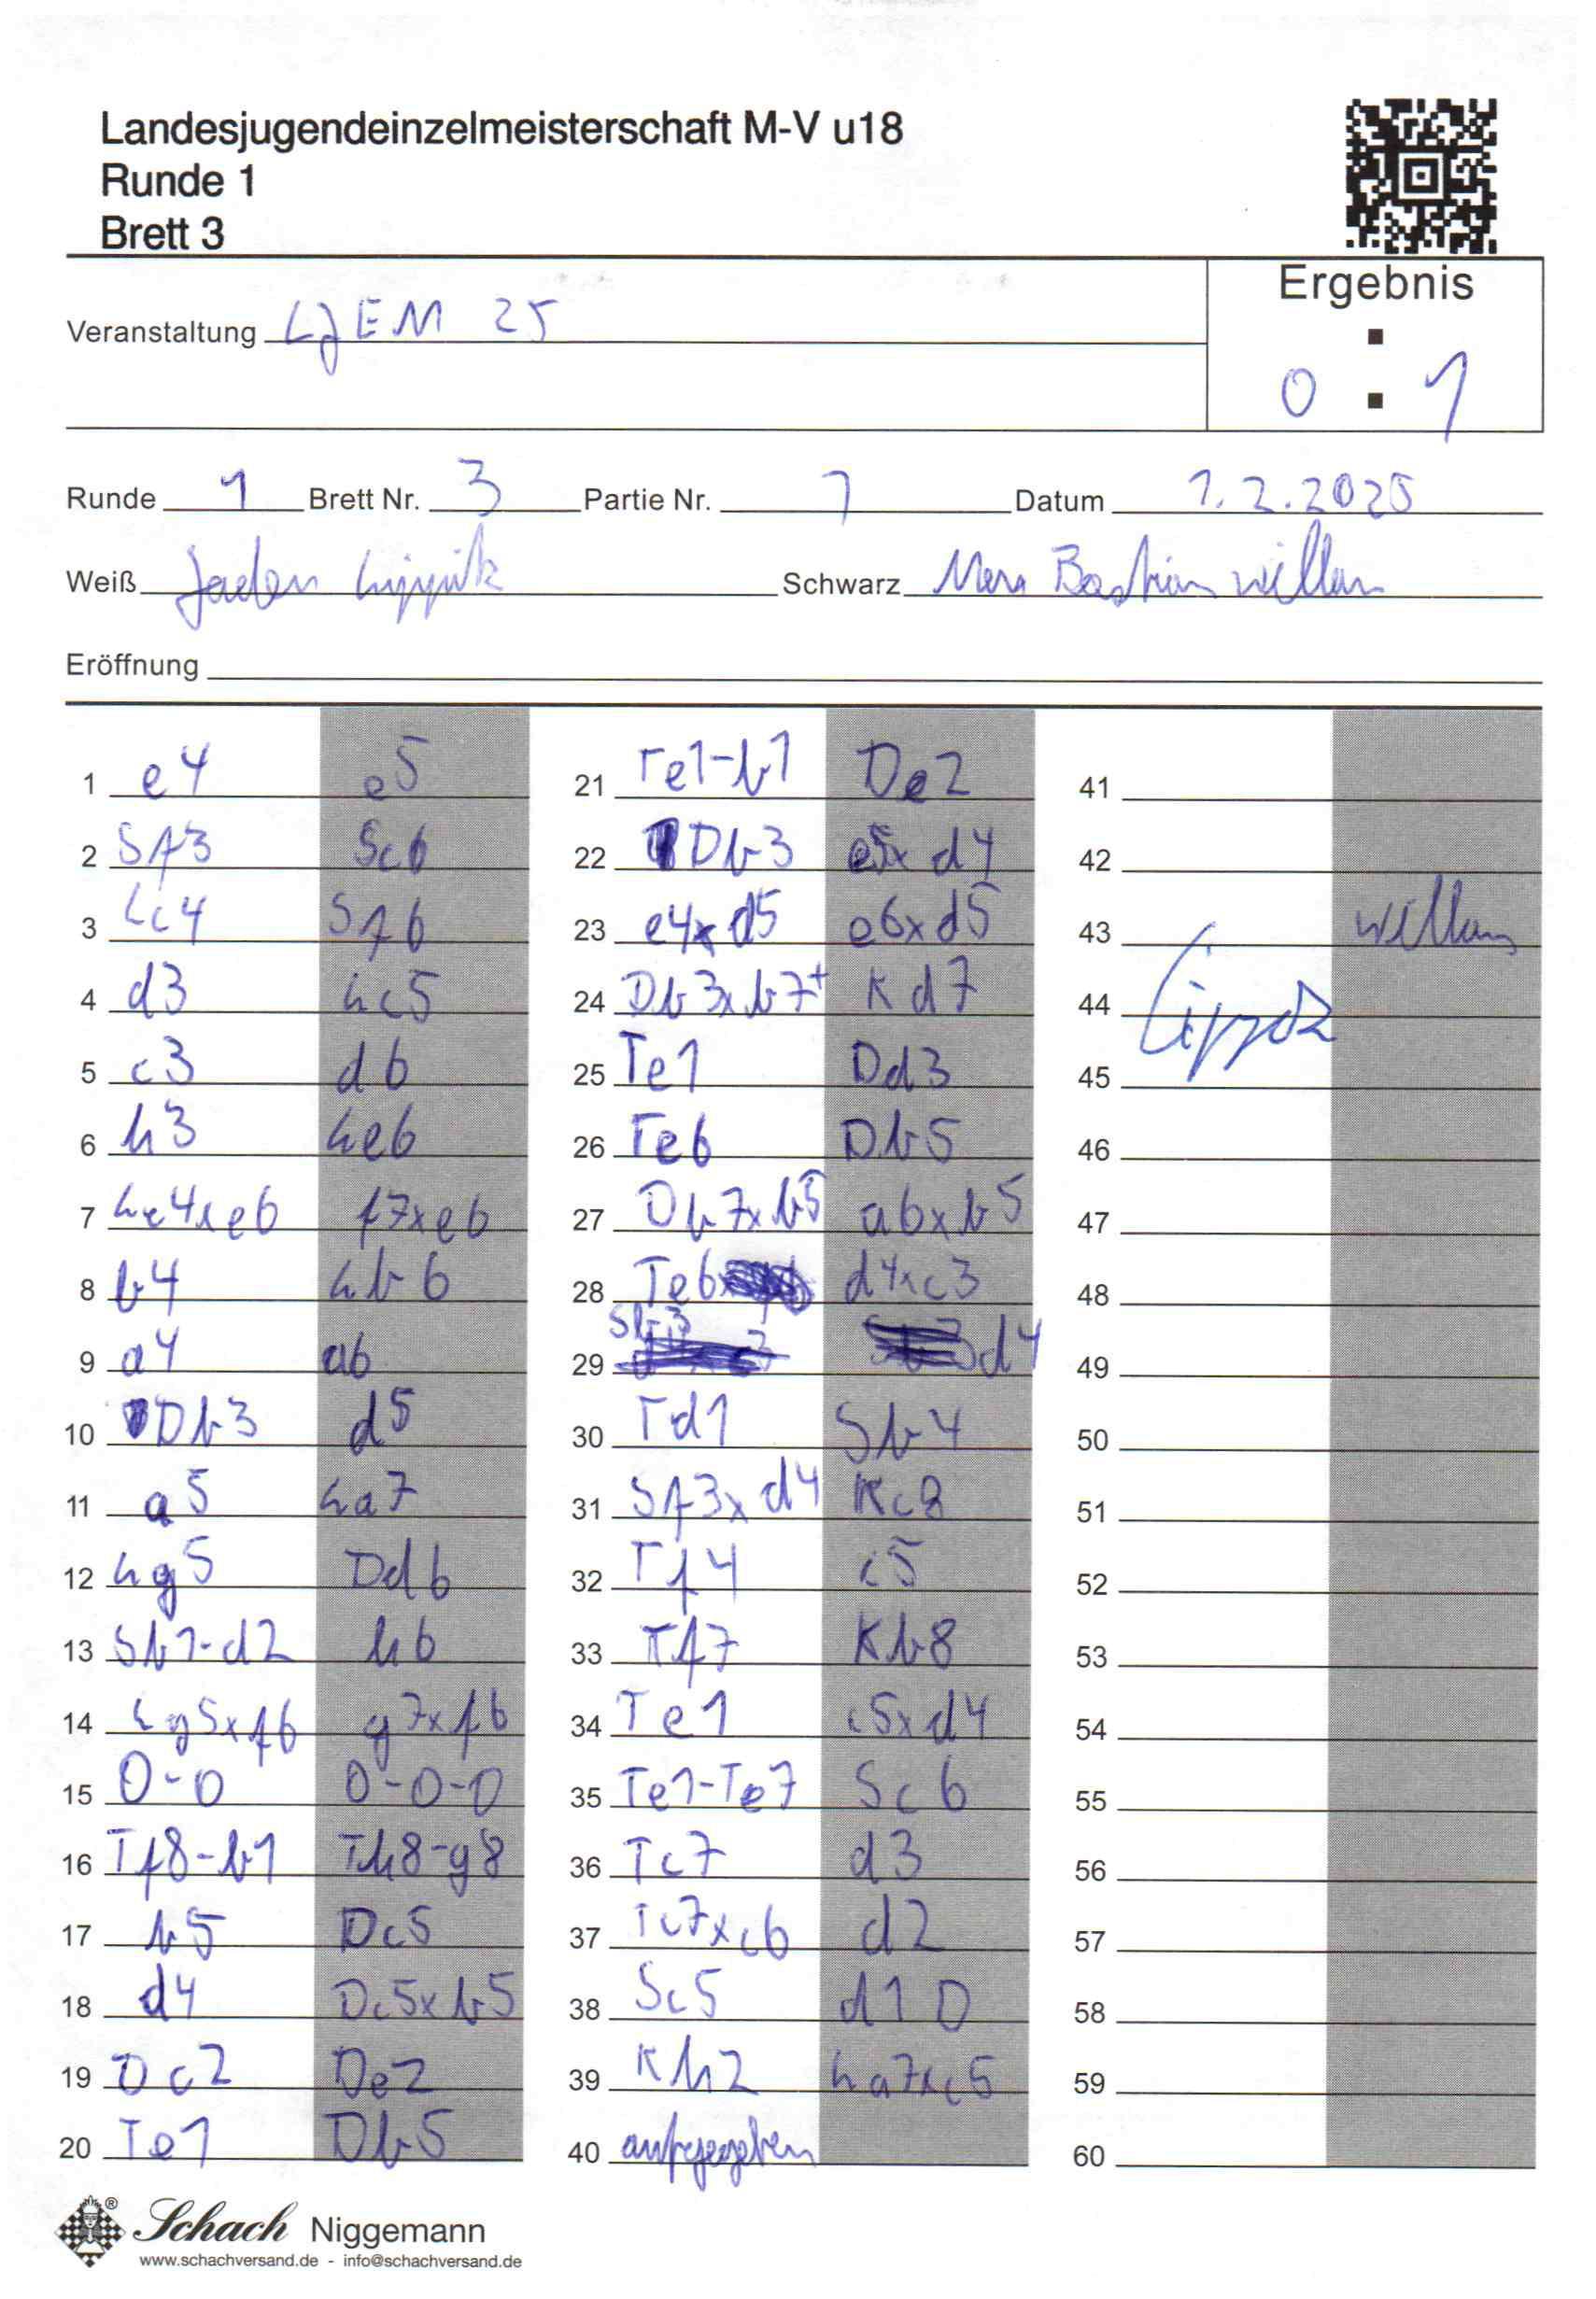 Landesjugendeinzelmeisterschaft M-V u18
Runde 1
Brett 3
Ergebnis
Veranstaltung LJEM 25
0 : 1
Runde 1 Brett Nr. 3 Partie Nr. 1 Datum 1.2.2025
Weiß Jaden Schwarz Bastian Willam
Eröffnung
1 e4 e5
2 Sf3 Sc6
3 Lc4 Sf6
4 d3 Lc5
5 c3 d6
6 h3 Le6
7 Lc4xe6 f7xe6
8 b4 Lb6
9 a4 a6
10 Db3 d5
11 a5 La7
12 Lg5 Dd6
13 Sb1-d2 h6
14 Lg5xf6 g7xf6
15 0-0 0-0-0
16 Tf8-b1 Th8-g8
17 b5 Dc5
18 d4 Dc5xb5
19 Dc2 De2
20 Te1 Db5
21 Te1-b1 De2
22 Db3 e5xd4
23 e4xd5 e6xd5
24 Db3xb7+ Kd7
25 Te1 Dd3
26 Te6 Db5
27 Db7xb5 a6xb5
28 Te6 d4xc3
29 Sb3 d4
30 Td1 Sb4
31 Sf3xd4 Kc8
32 Tf4 c5
33 Tf7 Kb8
34 Te1 c5xd4
35 Te1-Te7 Sc6
36 Tc7 d3
37 Tc7xc6 d2
38 Sc5 d1D
39 Kh2 La7xc5
40 aufgegeben
41
42
43 Willam
44
45
46
47
48
49
50
51
52
53
54
55
56
57
58
59
60
Schach Niggemann
www.schachversand.de - info@schachversand.de